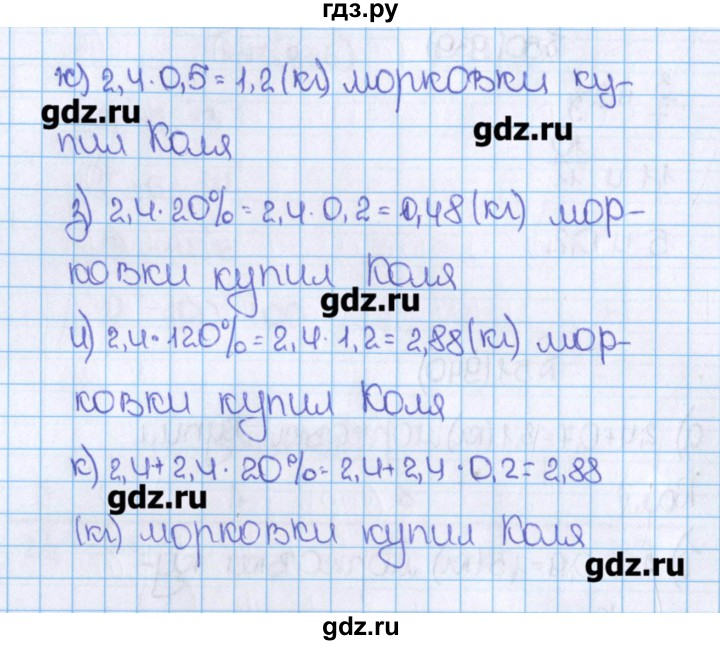 гдз.ру
ж) 2,4·0,5=1,2(кг) морковки ку-
gdz.ru
gdz.ru
пил Коля
з) 2,4·20%=2,4·0,2=0,48(кг) мор-
ковки купил Коля
gdz.ru
и) 2,4·120%=2,4·1,2=2,88(кг) мор-
ковки купил Коля
к) 2,4+2,4·20%=2,4+2,4·0,2=2,88
gdz.ru
(кг) морковки купил Коля
gdz.ru
gdz.ru